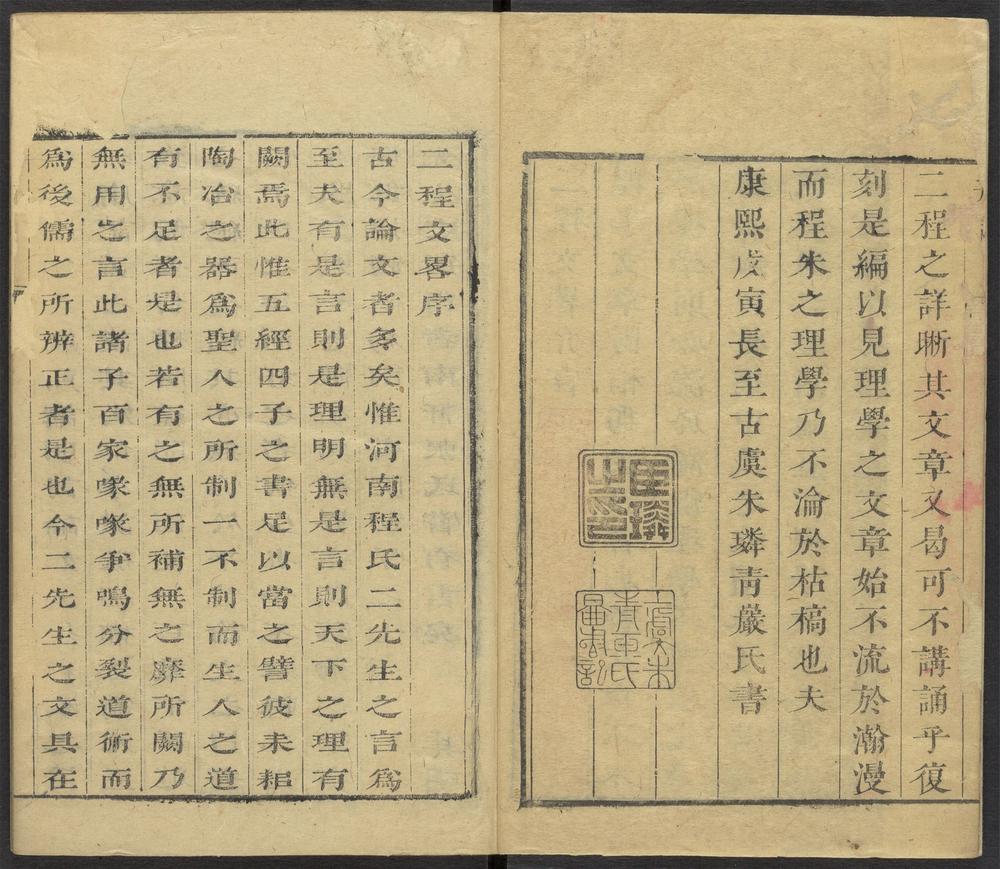 二程之詳晰其文章又曷可不講誦乎復
刻是編以見理學之文章始不流於瀚漫
而程朱之理學乃不淪於枯槁也夫
康熙戊寅長至古虞朱璘青巖氏書
二程文畧序
古今論文者多矣惟河南程氏二先生之言爲
至夫有是言則是理明無是言則天下之理有
闕焉此惟五經四子之書足以當之譬彼耒耜
陶冶之器爲聖人之所制一不制而生人之道
有不足者是也若有之無所補無之靡所闕乃
無用之言此諸子百家喙喙爭鳴分裂道術而
爲後儒之所辨正者是也今二先生之文具在